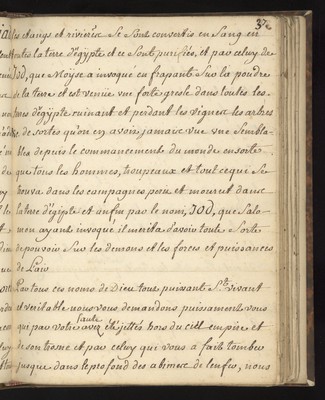 37
les etangs et rivieres Se Sont convertis en Sang en
toutes la terre d'egypte et ce Sont purifiées, et par celuy de
JOD, que Moyse a invoque en frapant Sur la poudre
de la terre et est venüe vne forte gresle dans toutes les
terres d'egypte ruinant et perdant les vignes les arbres
de sortes qu'on en avois jamais vue vne Sembla-
bles depuis le commencement du monde ensorte
que tous les hommes, troupeaux et tout ceque Se
trouva dans les campagnes peris et mourut dans
la terre d'egipte et enfin par le nom, JOD, que Salo-
mon ayant invoque il merita davoir toute Sorte
de pouvoir Sur les demons et les forces et puissances
de Lair
Par tous ces noms de Dieu tout puissant St. vivant
et veritable nous vous demandons puissament vous
qui par votre faute avez été jettés hors du ciel empire et
de son trosne et par celuy qui vous a fait tomber
jusque dans le profond des abimes de l'enfer, nous